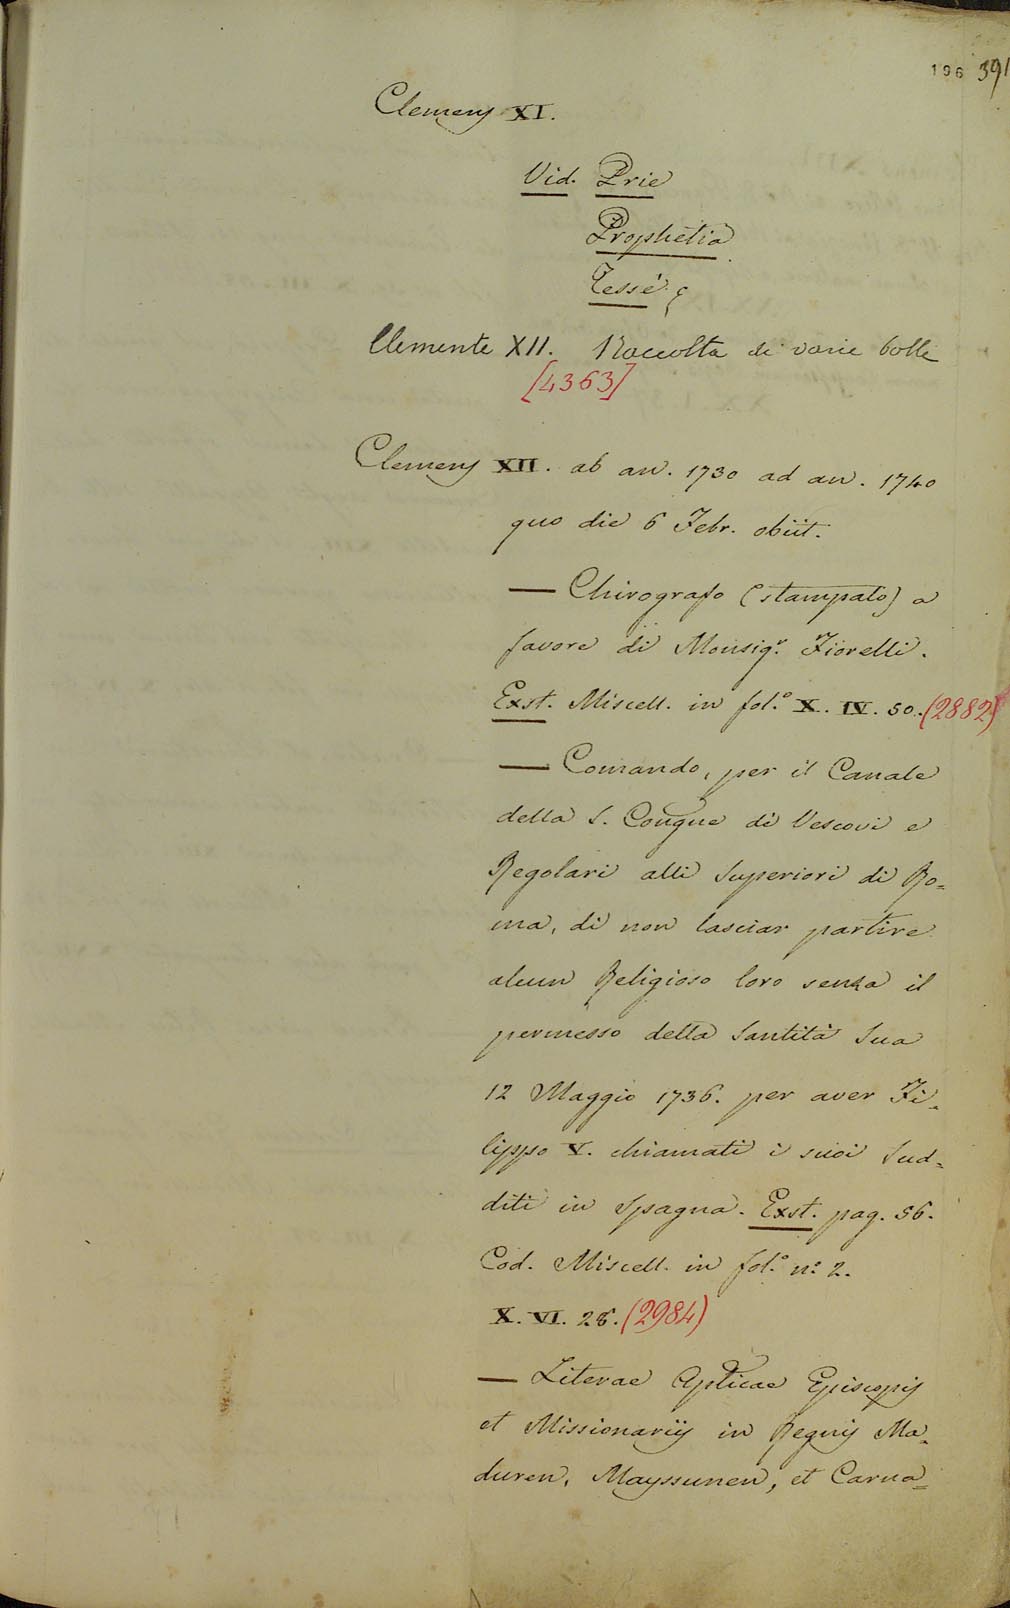 196 391
Clemens XI.
Vid. Prie
Prophetia
Tessé
Clemente XII. Raccolta di varie bolle
[4363]
Clemens XII. ab an. 1730 ad an. 1740
quo die 6 Febr. obiit.
— Chirografo (stampato) a
favore di Monsigr. Fiorelli.
Exst. Miscell. in fol.o X. IV. 50. (2882)
— Comando, per il Canale
della S. Congne di Vescovi e
Regolari alli Superiori di Ro=
ma, di non lasciar partire
alcun Religioso loro senza il
permesso della Santità Sua
12 Maggio 1736. per aver Fi=
lippo V. chiamati i suoi Sud=
diti in Spagna. Exst. pag. 56.
Cod. Miscell. in fol.o n.o 2.
X. VI. 28. (2984)
— Literae Aplicae Episcopis
et Missionariis in Regnis Ma=
duren, Mayssunen, et Carna=